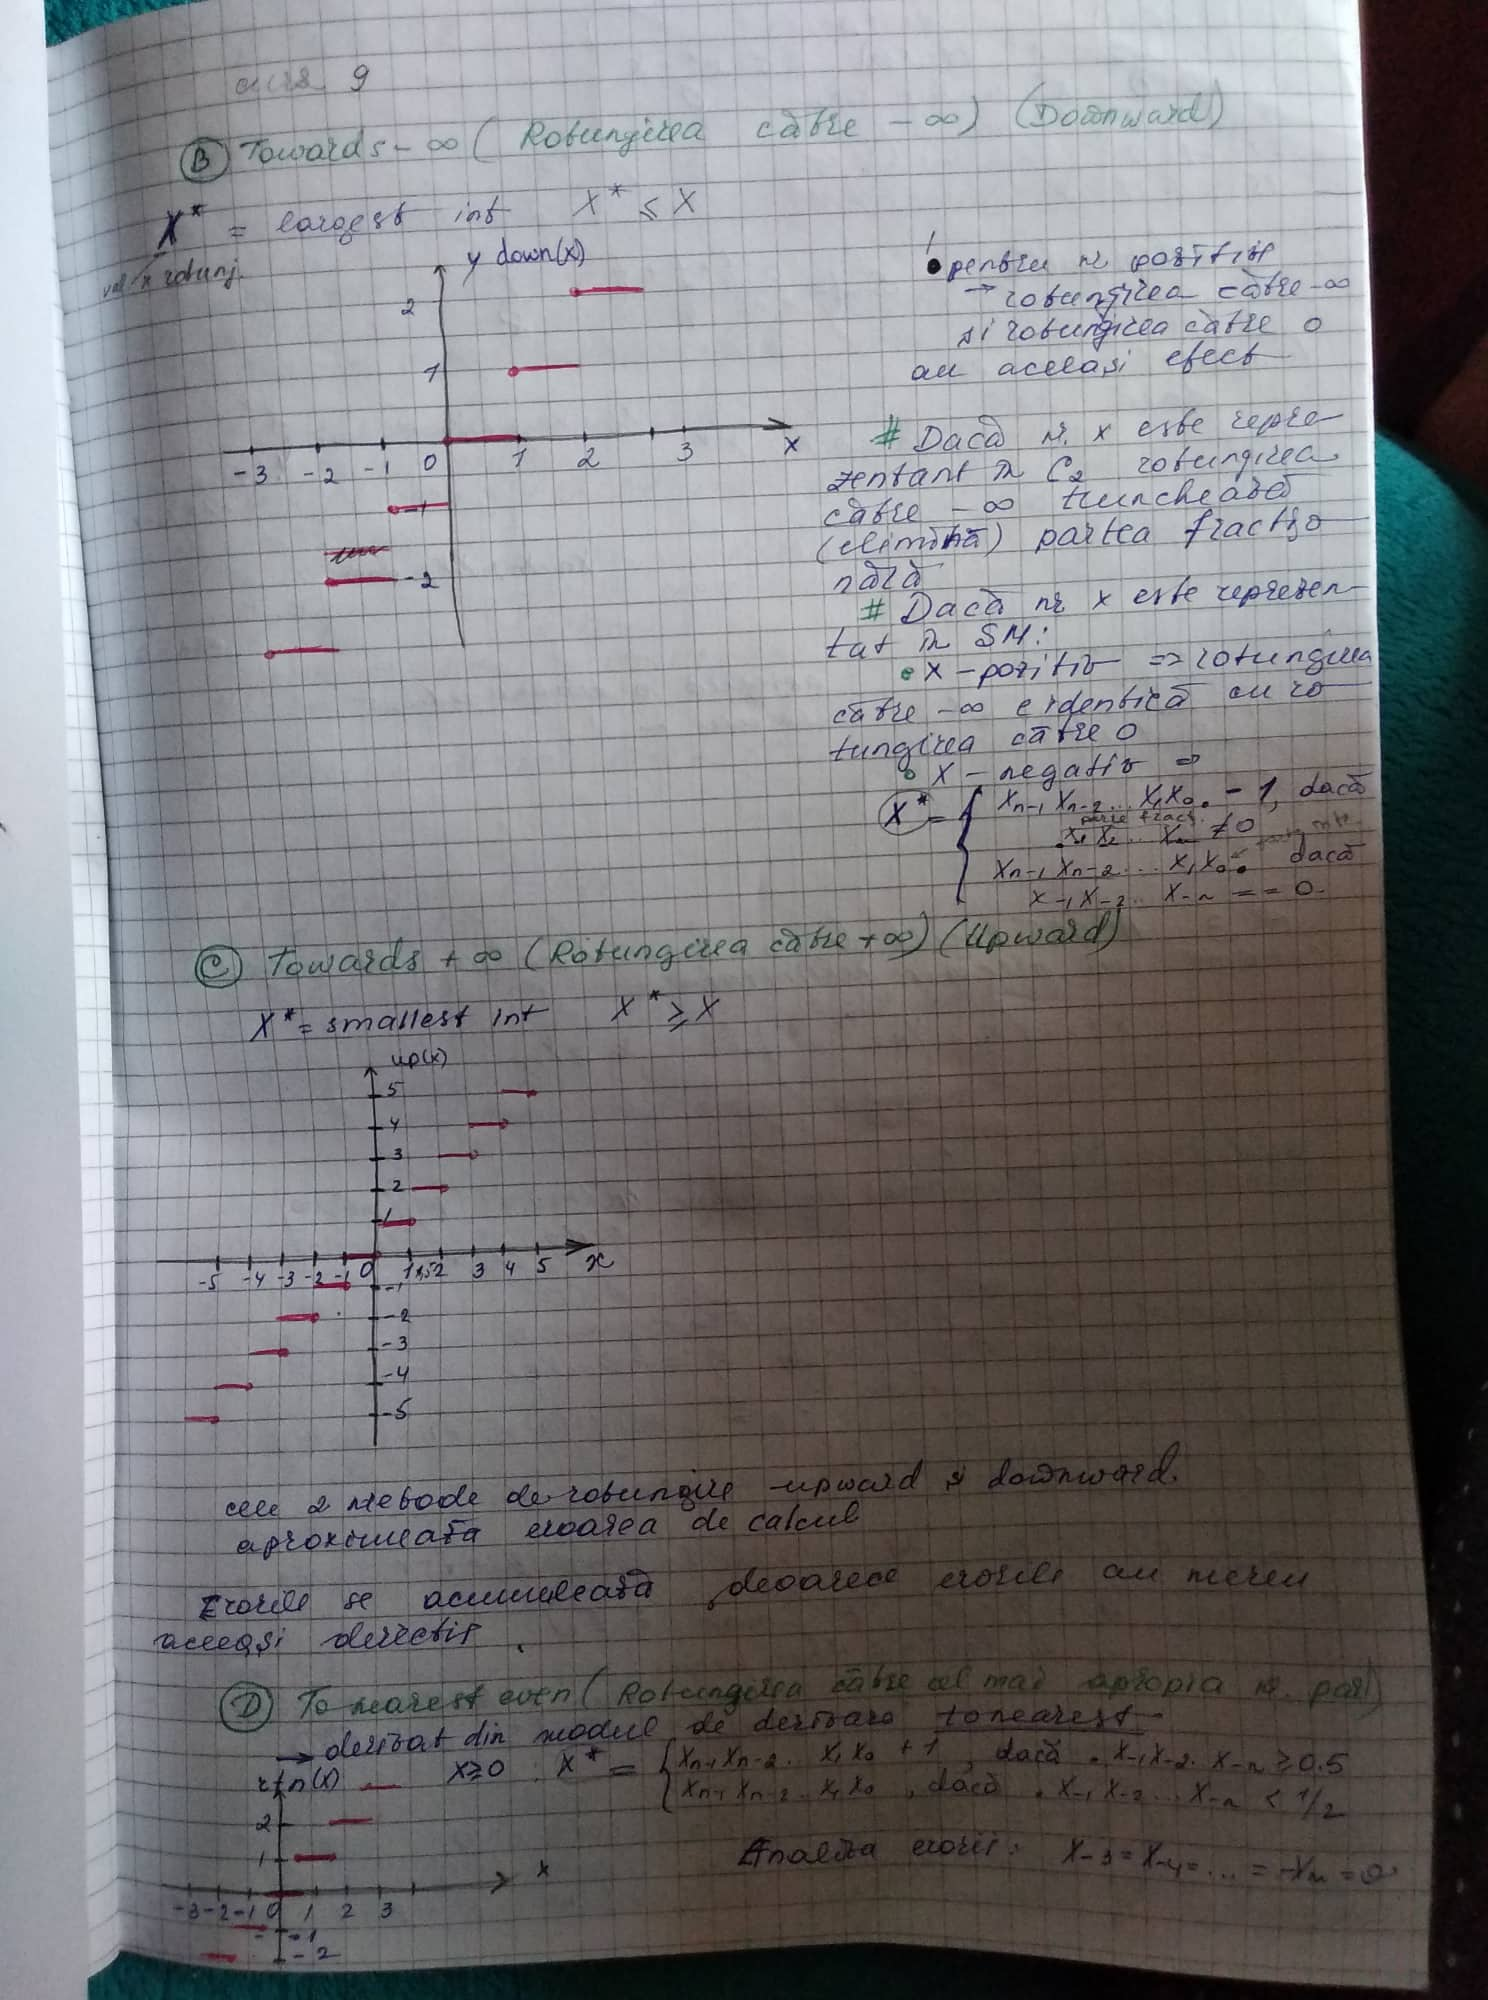 curs 9
(B) Towards -∞ (Rotunjirea către -∞) (Downward)
X* = largest int X* ≤ X
val x rotunj.
y down(x)
2
1
-3 -2 -1 0 1 2 3 x
-1
-2
! pentru nr pozitiv
→ rotungirea către -∞
si rotungirea catre 0
au aceeași efect
# Dacă nr. x este repre-
zentant în C2 rotungirea
către -∞ trunchează
(elimină) partea fracțio
nară
# Dacă nr x este reprezen-
tat în SM:
• X - pozitiv => rotungirea
către -∞ e identică cu ro
tungirea către 0
• X - negativ =>
X* = { Xn-1 Xn-2 ... X1X0. - 1, dacă
parte fract.
.X1 X2 ... Xm ≠ 0
Xn-1 Xn-2 ... X1X0. dacă
X-1X-2 ... X-m == 0.
(C) Towards +∞ (Rotungirea către +∞) (Upward)
X* = smallest int X* ≥ X
up(x)
5
4
3
2
1
-5 -4 -3 -2 -1 0 1 1,5 2 3 4 5 x
-1
-2
-3
-4
-5
cele 2 metode de rotungire upward și downward.
aproximează eroarea de calcul
Erorile se acumulează, deoarece erorile au mereu
aceeași derectie.
(D) To nearest even (Rotungirea către cel mai apropia nr. par)
→ derivat din modul de derivare to nearest
rtn(x) X≥0 : X* = { Xn-1 Xn-2 .. X1X0 + 1, dacă .X-1X-2. X-m ≥ 0.5
Xn-1 Xn-2 .. X1X0, dacă .X-1X-2 ... X-m < 1/2
2
1
Analiza erorii: X-3 = X-4 = ... = -Xm = 0
x
-3 -2 -1 0 1 2 3
-1
-2